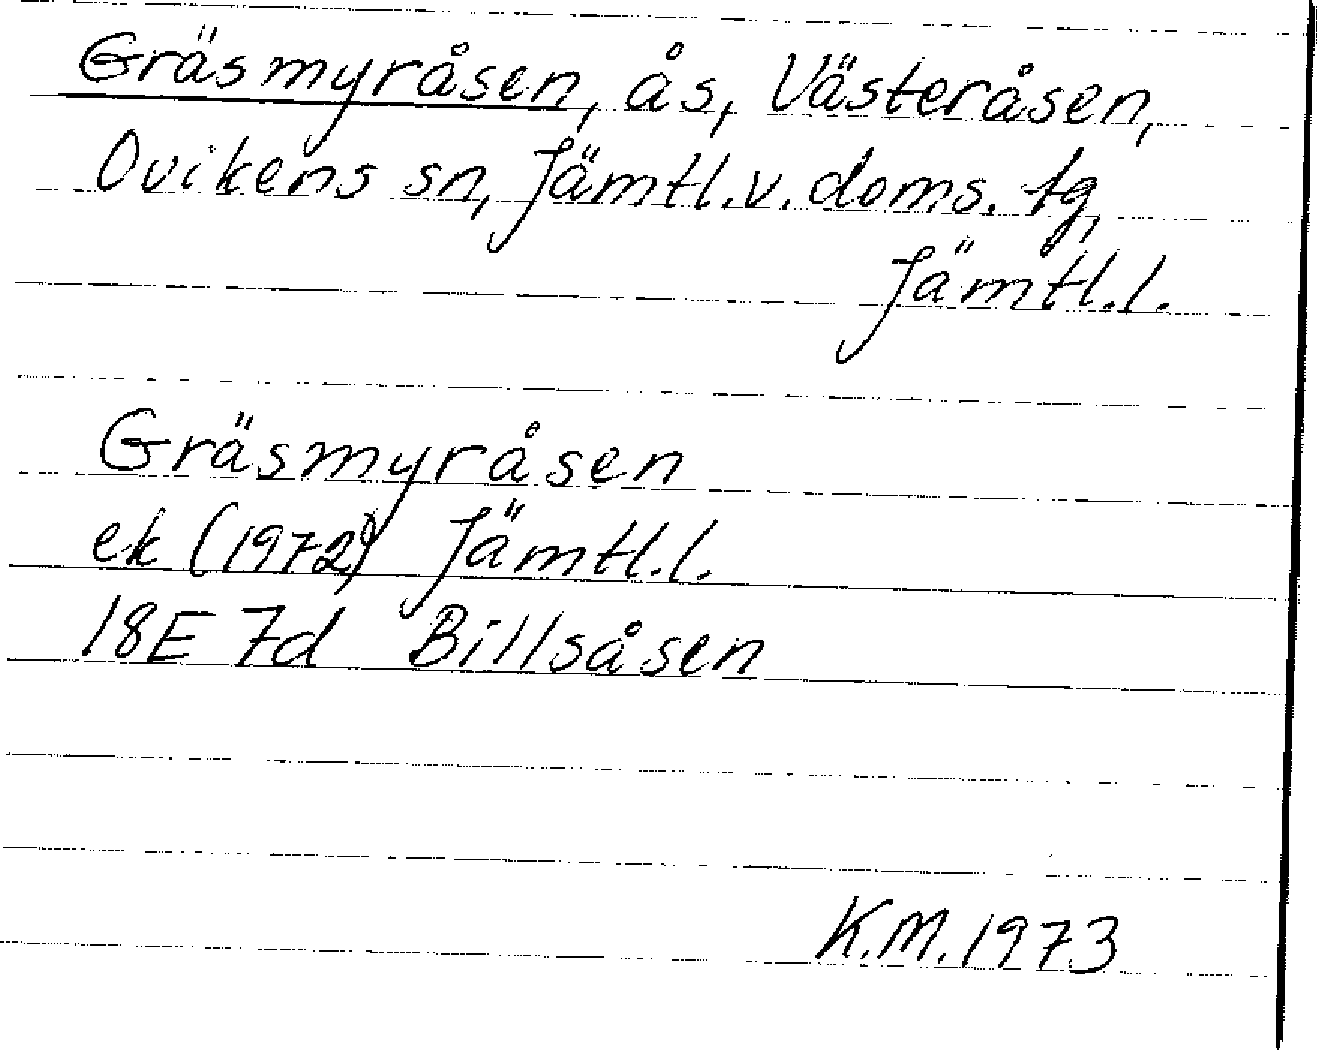 Gräsmyråsen, ås, Västeråsen,
Ovikens sn, Jämtl.v.doms.tg,
Jämtl.l.
Gräsmyråsen
ek (1972) Jämtl.l.
18E 7d Billsåsen
K.M.1973